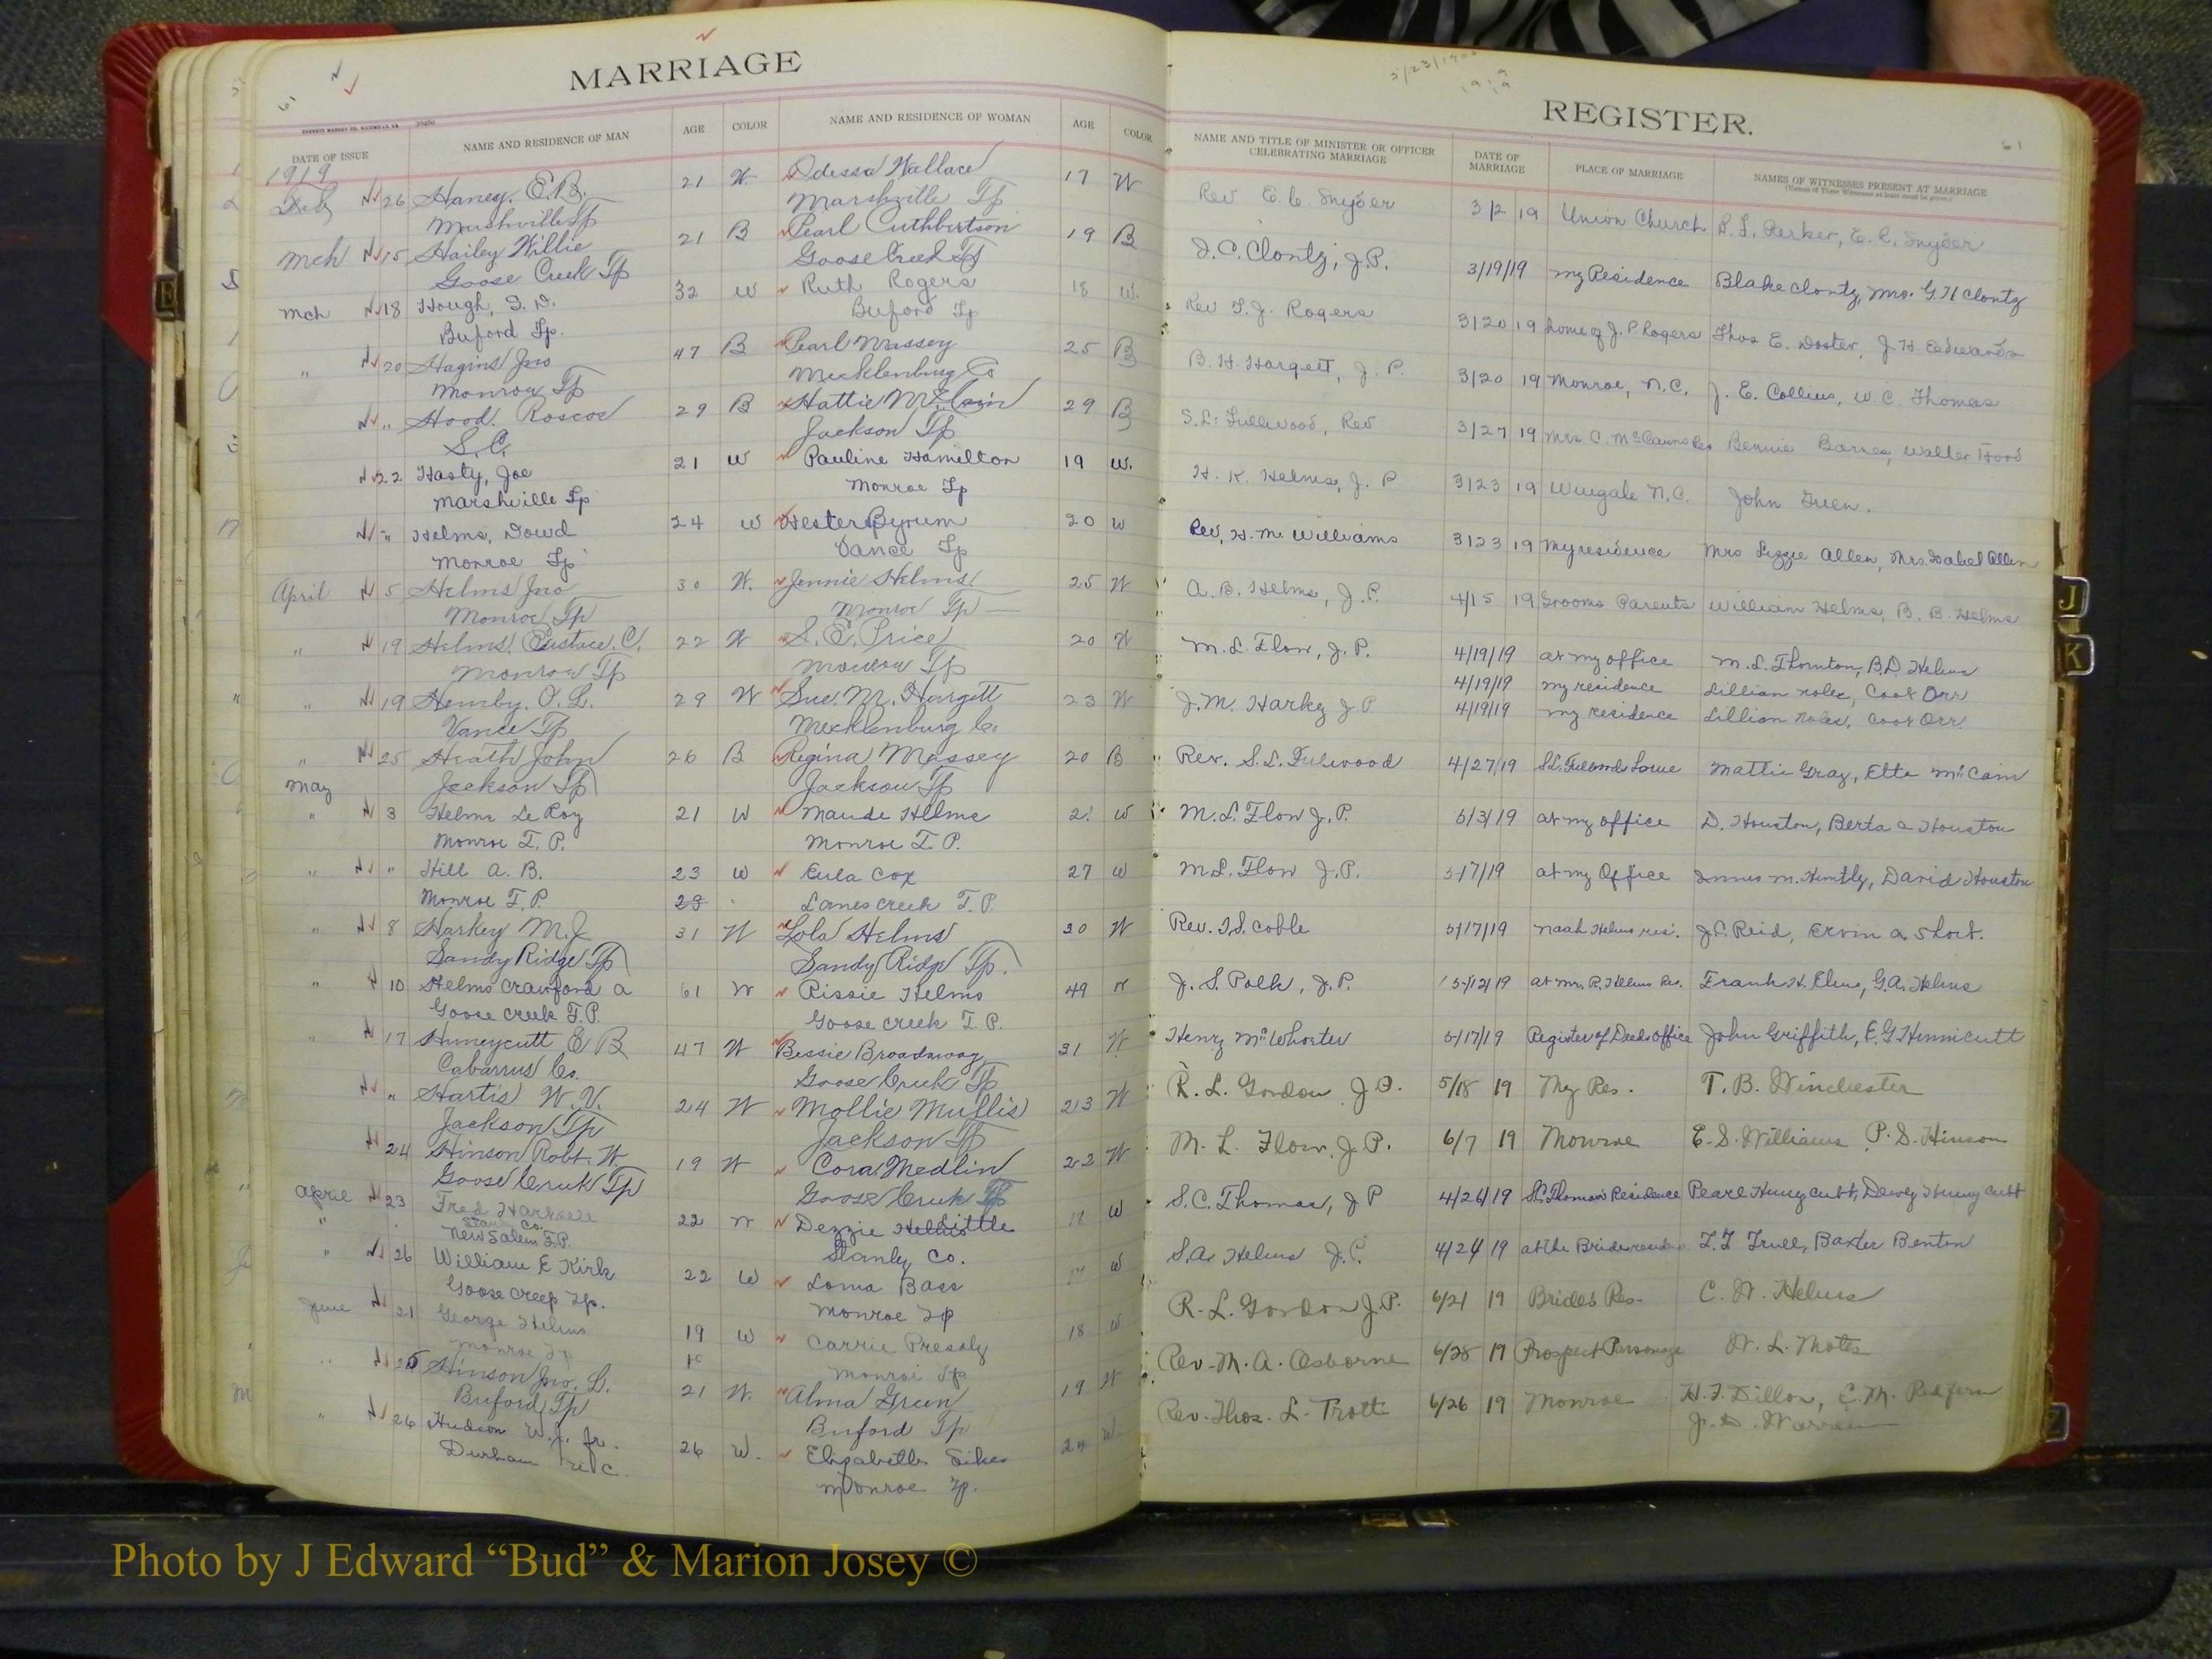 MARRIAGE
DATE OF ISSUE NAME AND RESIDENCE OF MAN AGE COLOR NAME AND RESIDENCE OF WOMAN AGE COLOR
1919
Feb 26 Haney, E.B. 21 W. Odessa Wallace 17 W
Marshville Tp Marshville Tp
Mch 15 Hailey Willie 21 B Pearl Cuthbertson 19 B
Goose Creek Tp Goose Creek Tp
Mch 18 Hough, 32 W Ruth Rogers 18 W.
Buford Tp. Buford Tp
" 20 Hagins Jno 47 B Pearl Massey 25 B
Monroe Tp Mecklenburg Co
" Hood, Roscoe 29 B Hattie McClain 29 B
S.C. Jackson Tp
22 Hasty, Joe 21 W Pauline Hamilton 19 W.
Marshville Tp Monroe Tp
" Helms, Dowd 24 W Hester Byrum 20 W
Monroe Tp Vance Tp
April 5 Helms Jno 30 W. Jennie Helms 25 W
Monroe Tp Monroe Tp
" 19 Helms, Eustace. C. 22 W S. E. Price 20 W
Monroe Tp Monroe Tp
" 19 Hemby, O. L. 29 W Sue. M. Hargett 23 W
Vance Tp Mecklenburg Co.
" 25 Heath John 26 B Regina Massey 20 B
May Jackson Tp Jackson Tp
" 3 Helms LeRoy 21 W Maude Helms 21 W
Monroe T. P. Monroe T. P.
" " Hill A. B. 23 W Eula Cox 27 W
Monroe T. P. Lanes creek T. P.
" 8 Harkey M. J. 31 W Lola Helms 30 W
Sandy Ridge Tp Sandy Ridge Tp.
" 10 Helms Crawford A 61 W Rissie Helms 49 W
Goose creek T.P. Goose creek T. P.
" 17 Huneycutt E B 47 W Bessie Broadway 31 W
Cabarrus Co. Goose Creek Tp
" Hartis W. V. 24 W Mollie Mullis 23 W
Jackson Tp Jackson Tp
24 Hinson Robt. W. 19 W Cora Medlin 22 W
Goose Creek Tp Goose Creek Tp
April 23 Fred 22 W Dezzie Little 18 W
New Salem T.P. Stanly Co.
" 26 William E Kirk 22 W Loma Bass 17 W
Goose Creep Tp. Monroe Tp
June 21 George Helms 19 W Carrie Pressly 18 W
Monroe Tp Monroe Tp
" 25 Hinson Jno. L. 21 W. Alma Green 19 W
Buford Tp Buford Tp
" 26 Hudson W. J. Jr. 26 W. Elizabeth Sikes 24 W
Durham N C. Monroe Tp.
REGISTER.
61
NAME AND TITLE OF MINISTER OR OFFICER CELEBRATING MARRIAGE DATE OF MARRIAGE PLACE OF MARRIAGE NAMES OF WITNESSES PRESENT AT MARRIAGE
Rev E. C. Snyder 3/2 19 Union Church Parker, E. C. Snyder
J. C. Clontz, J. P. 3/19/19 my Residence Blake Clontz, Mrs. G. H Clontz
Rev T. J. Rogers 3/20 19 home of J. P Rogers Thos E. Doster, J. H. Edwards
B. H. Hargett, J. P. 3/20 19 Monroe, N.C. J. E. Collins, W C. Thomas
S. L. Fullwood, Rev 3/27 19 Mrs C. McCains Res Bennie Walter Hood
H. K. Helms, J. P 3/23 19 Wingate N.C. John Green.
Rev, H. M. Williams 3/23 19 My residence Mrs Lizzie Allen, Mrs. Isabel Allen
A. B. Helms, J. P. 4/15 19 Grooms Parents William Helms, B. B. Helms
M. L. Flow, J. P. 4/19/19 at my office M. L. Thornton, B.D. Helms
4/19/19 my residence Lillian Noles, Cook Orr
J. M. Harkey J P 4/19/19 my residence Lillian Noles, Cook Orr.
Rev. S. L. Fulwood 4/27/19 Mattie Gray, Etta McCain
M. L. Flow J. P. 5/3/19 at my office D. Houston, Berta a Houston
M. L. Flow J. P. 5/7/19 at my Office David Houston
Rev. T. S. Coble 5/17/19 Noah Helms res. J. C. Reid, Ervin A. Short.
J. S. Polk, J. P. 5/12/19 at Mr. R. Helms Res. Frank H. Elms, G. A. Helms
Henry McWhorter 5/17/19 Register of Deeds Office John Griffith, E. G. Hunnicutt
R. L. Gordon J P. 5/18 19 My Res. T. B. Winchester
M. L. Flow, J. P. 6/7 19 Monroe E. S. Williams P. S. Hinson
S. C. Thomas, J P 4/26/19 S.C. Thomas Residence Pearl Huneycutt, Dewey Huneycutt
S. A. Helms J. P. 4/24 19 at the Brides residence Trull, Baxter Benton
R. L. Gordon J. P. 6/21 19 Brides Res- C. W. Helms
Rev- M. A. Osborne 6/28 19 Prospect Parsonage W. L. Motes
Rev- Thos. L. Trott 6/26 19 Monroe H. F. Dillon, C. M. Redfern
J. D. Warren
E
J
K
Photo by J Edward “Bud” & Marion Josey ©